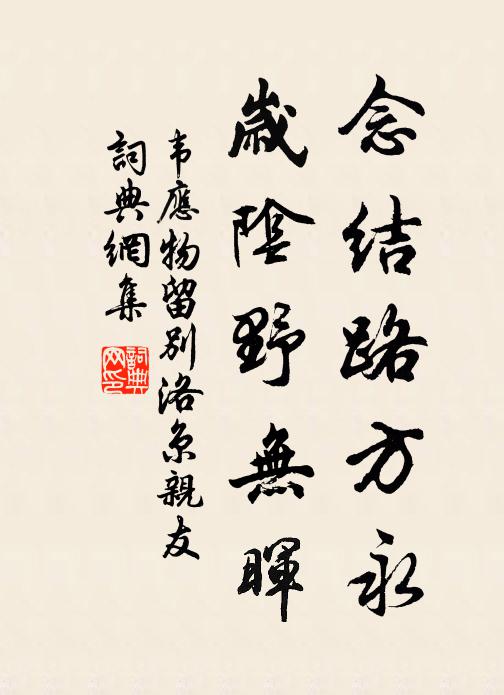 念结路方永
嵗陰野無暉
韦應物留别洛京親友
詞典網集
詞典网印